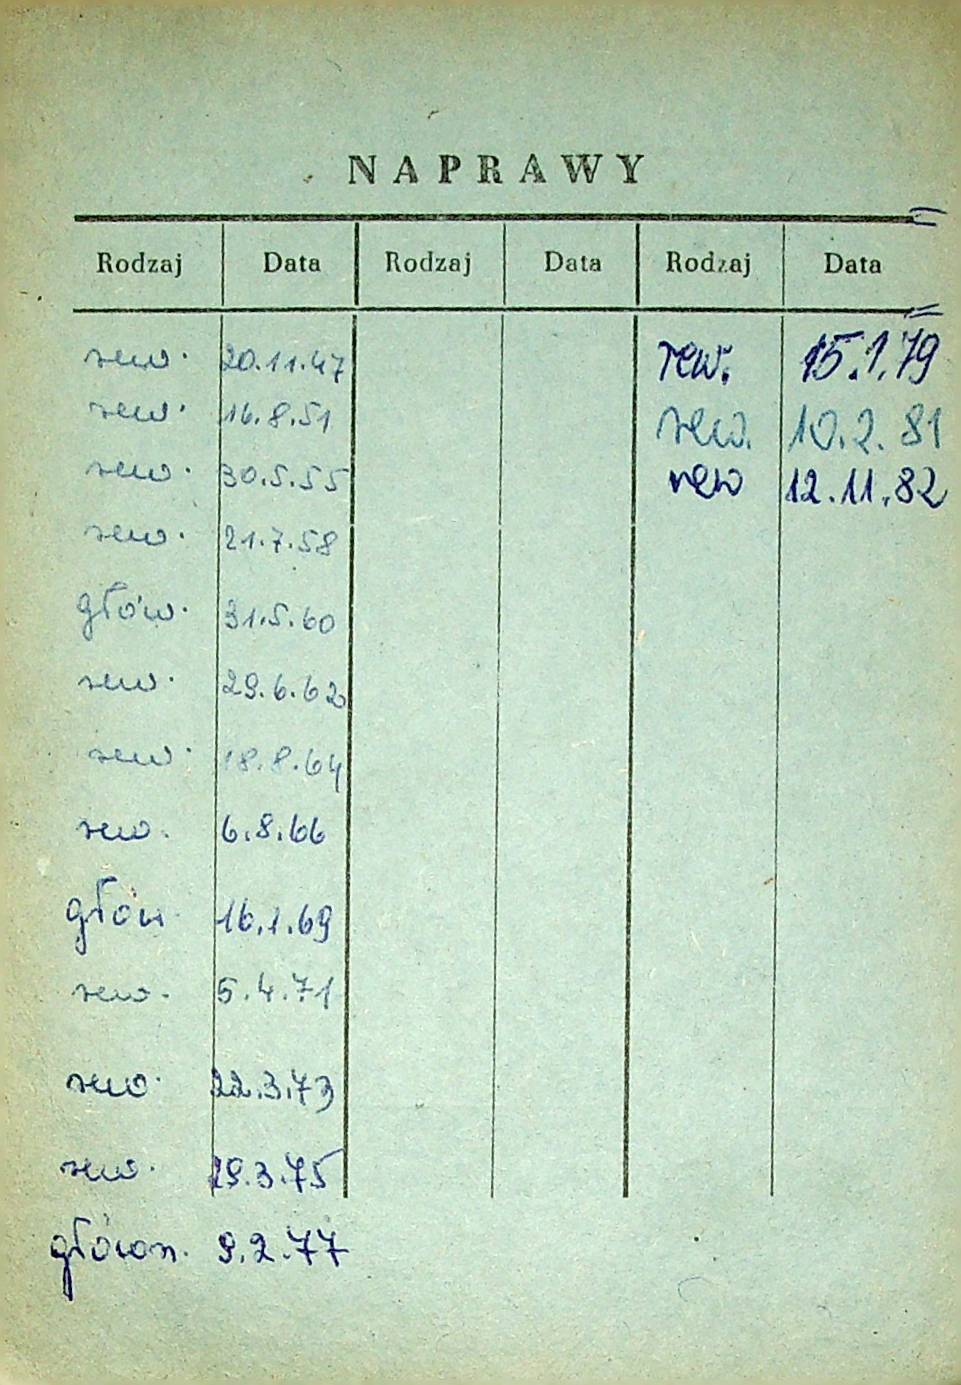 NAPRAWY
Rodzaj Data Rodzaj Data Rodzaj Data
rew. 20.11.47 rew. 15.1.79
rew. 16.8.51 rew. 10.2.81
rew. 30.5.55 rew 12.11.82
rew. 21.7.58
głów. 31.5.60
rew. 29.6.62
rew. 18.8.64
rew. 6.8.66
głów. 16.1.69
rew. 5.4.71
rew. 22.3.73
rew. 29.3.75
główn. 9.2.77